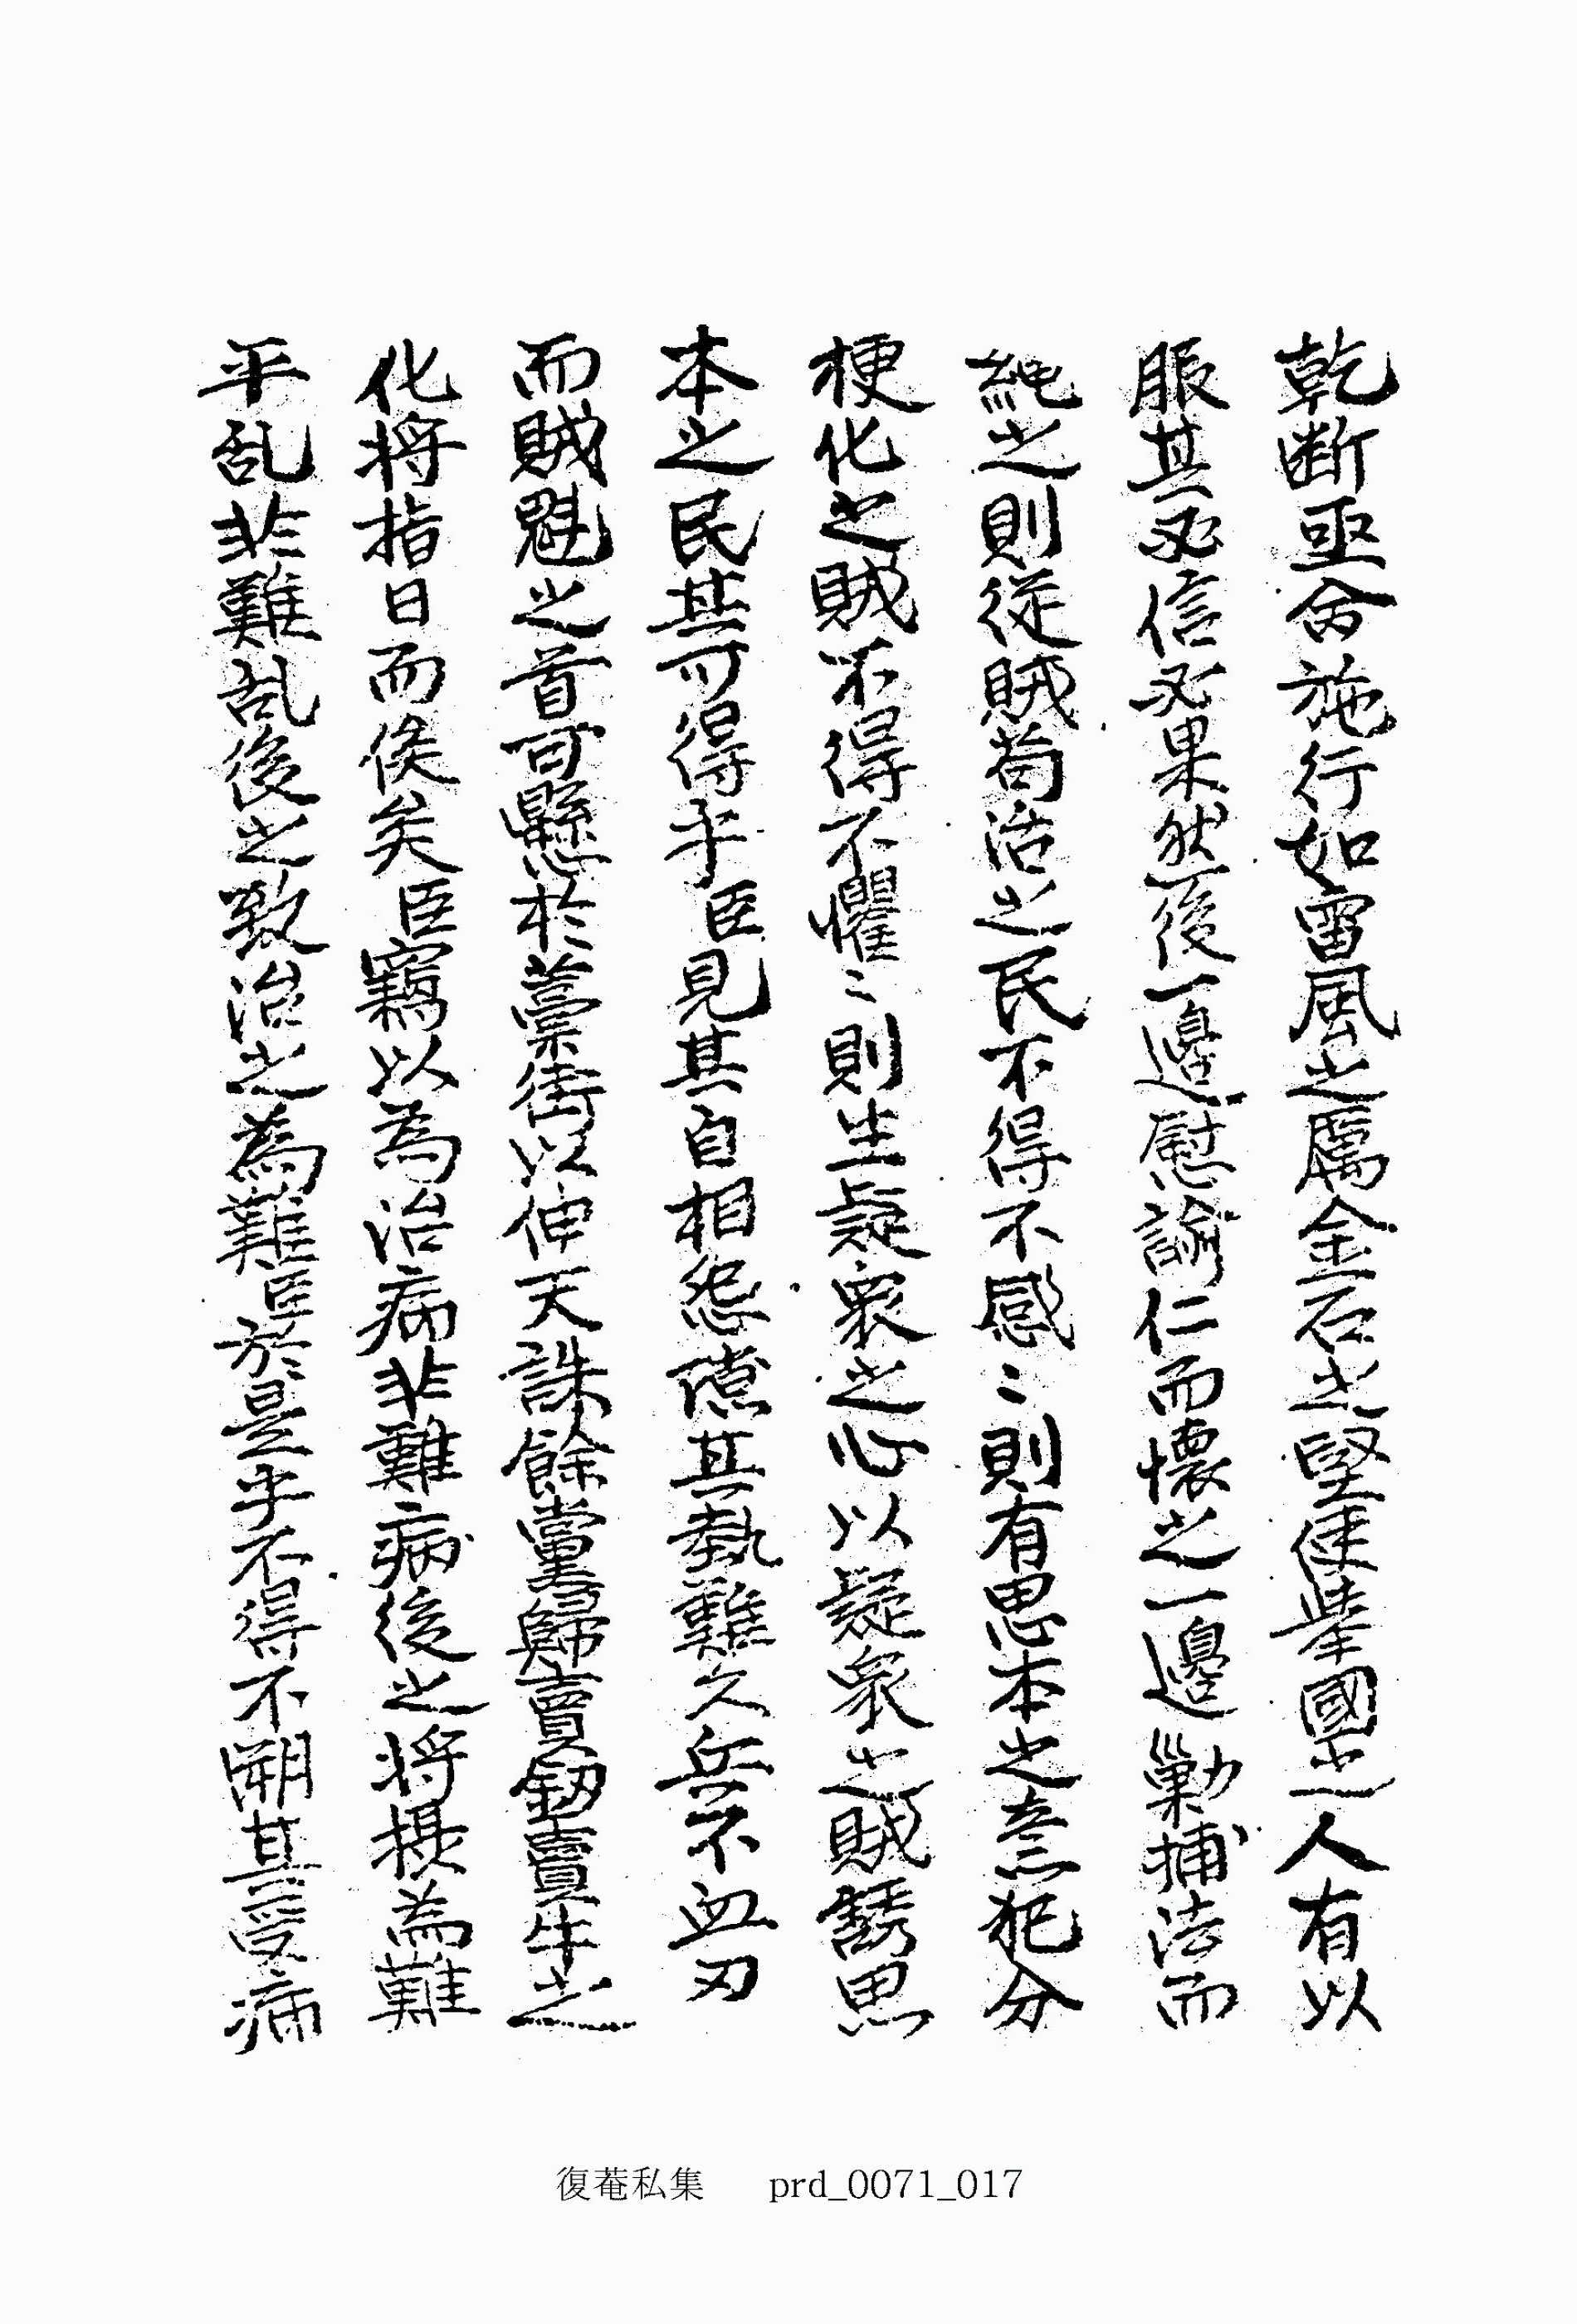 乾断亟命施行如雷風之厲金石之堅使擧國之人有以
服其必信必果然後一邊慰諭仁而懷之一邊勦捕法而
繩之則從賊苟活之民不得不感〻則有思本之意犯分
梗化之賊不得不懼〻則生疑衆之心以疑衆之賊誘思
本之民其可得乎臣見其自相怨懟其勢難久兵不血刃
而賊魁之首可懸於藁街以伸天誅餘黨歸賣釰賣牛之
化将指日而俟矣臣竊以為治病非難病後之将攝為難
平乱非難乱後之致治之為難臣於是乎不得不溯其受病
復菴私集 prd_0071_017